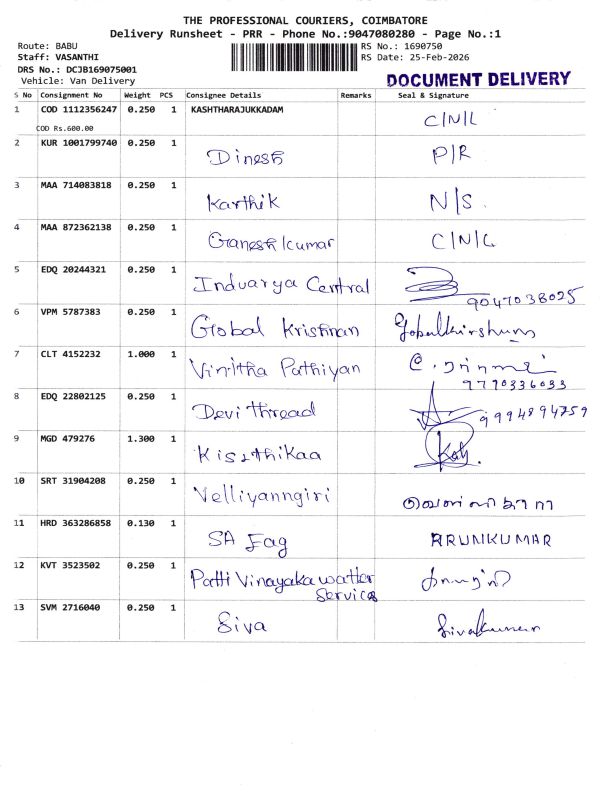 THE PROFESSIONAL COURIERS, COIMBATORE
Delivery Runsheet - PRR - Phone No.:9047080280 - Page No.:1
Route: BABU RS No.: 1690750
Staff: VASANTHI RS Date: 25-Feb-2026
DRS No.: DCJB169075001
Vehicle: Van Delivery DOCUMENT DELIVERY
S No Consignment No Weight PCS Consignee Details Remarks Seal & Signature
1 COD 1112356247 0.250 1 KASHTHARAJUKKADAM C/N/L
COD Rs.600.00
2 KUR 1001799740 0.250 1 Dinesh P/R
3 MAA 714083818 0.250 1 Karthik N/S.
4 MAA 872362138 0.250 1 Ganesh kumar C/N/L
5 EDQ 20244321 0.250 1 Induarya Central 9047038025
6 VPM 5787383 0.250 1 Global Krishnan
7 CLT 4152232 1.000 1 Vinitha Pathiyan
9790336033
8 EDQ 22802125 0.250 1 Devi thread 9994894759
9 MGD 479276 1.300 1
10 SRT 31904208 0.250 1 Velliyanngiri
11 HRD 363286858 0.130 1 SA Fag ARUNKUMAR
12 KVT 3523502 0.250 1 Patti Vinayaka watter
Services
13 SVM 2716040 0.250 1 Siva Sivakumar